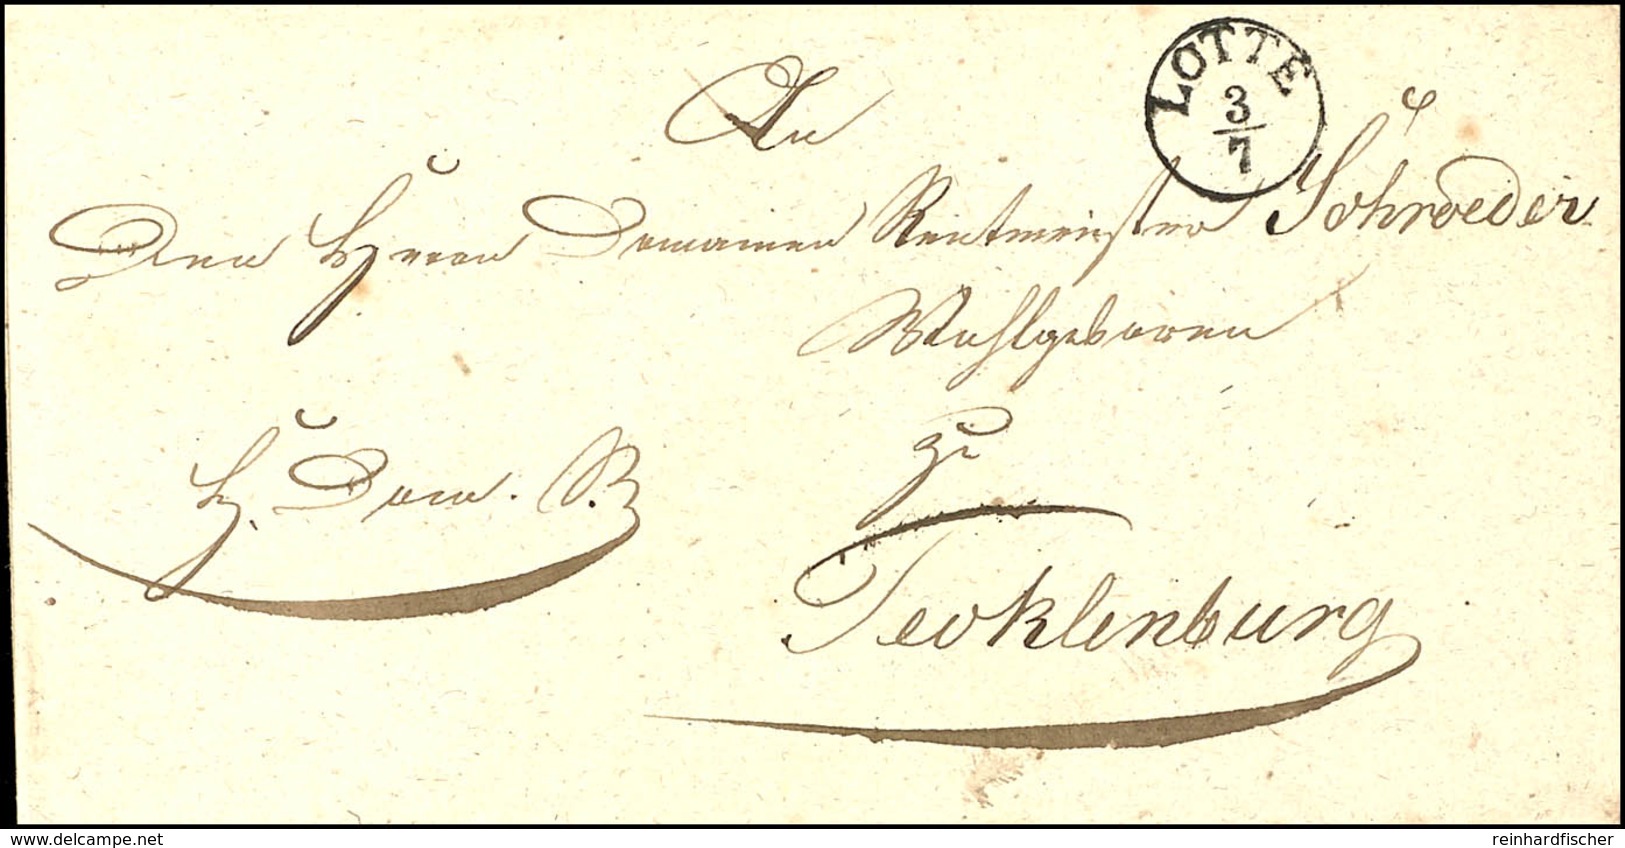 LOTTE
3/7
An
Den Herrn Domainen Rentmeister Schroeder
Wohlgeboren
H. Dom. S.
zu
Tecklenburg
www.delcampe.net
reinhardfischer